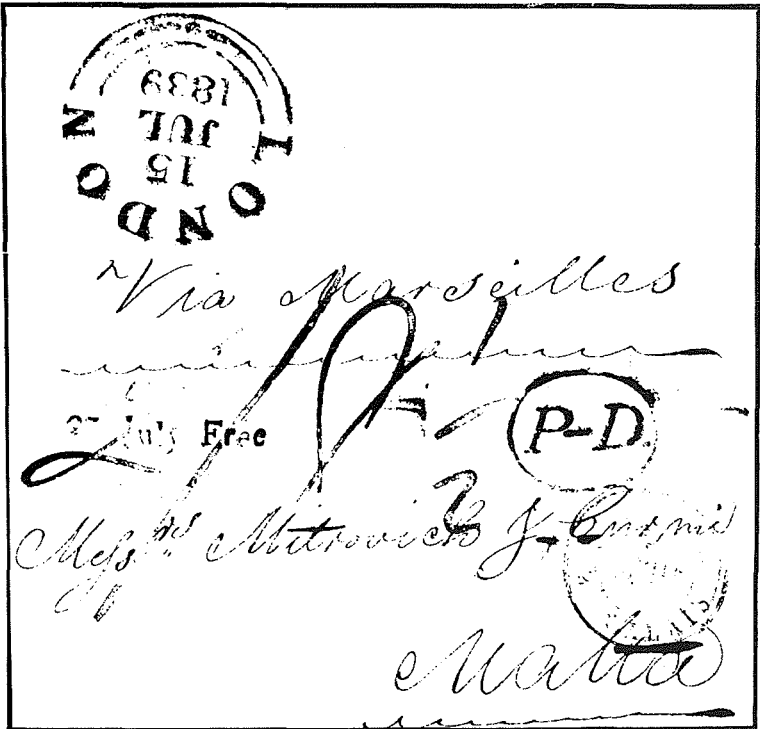 LONDON
15
JUL
1839
Via Marseilles
July Free
P-D
Mess.rs Mitrovich &
Malta